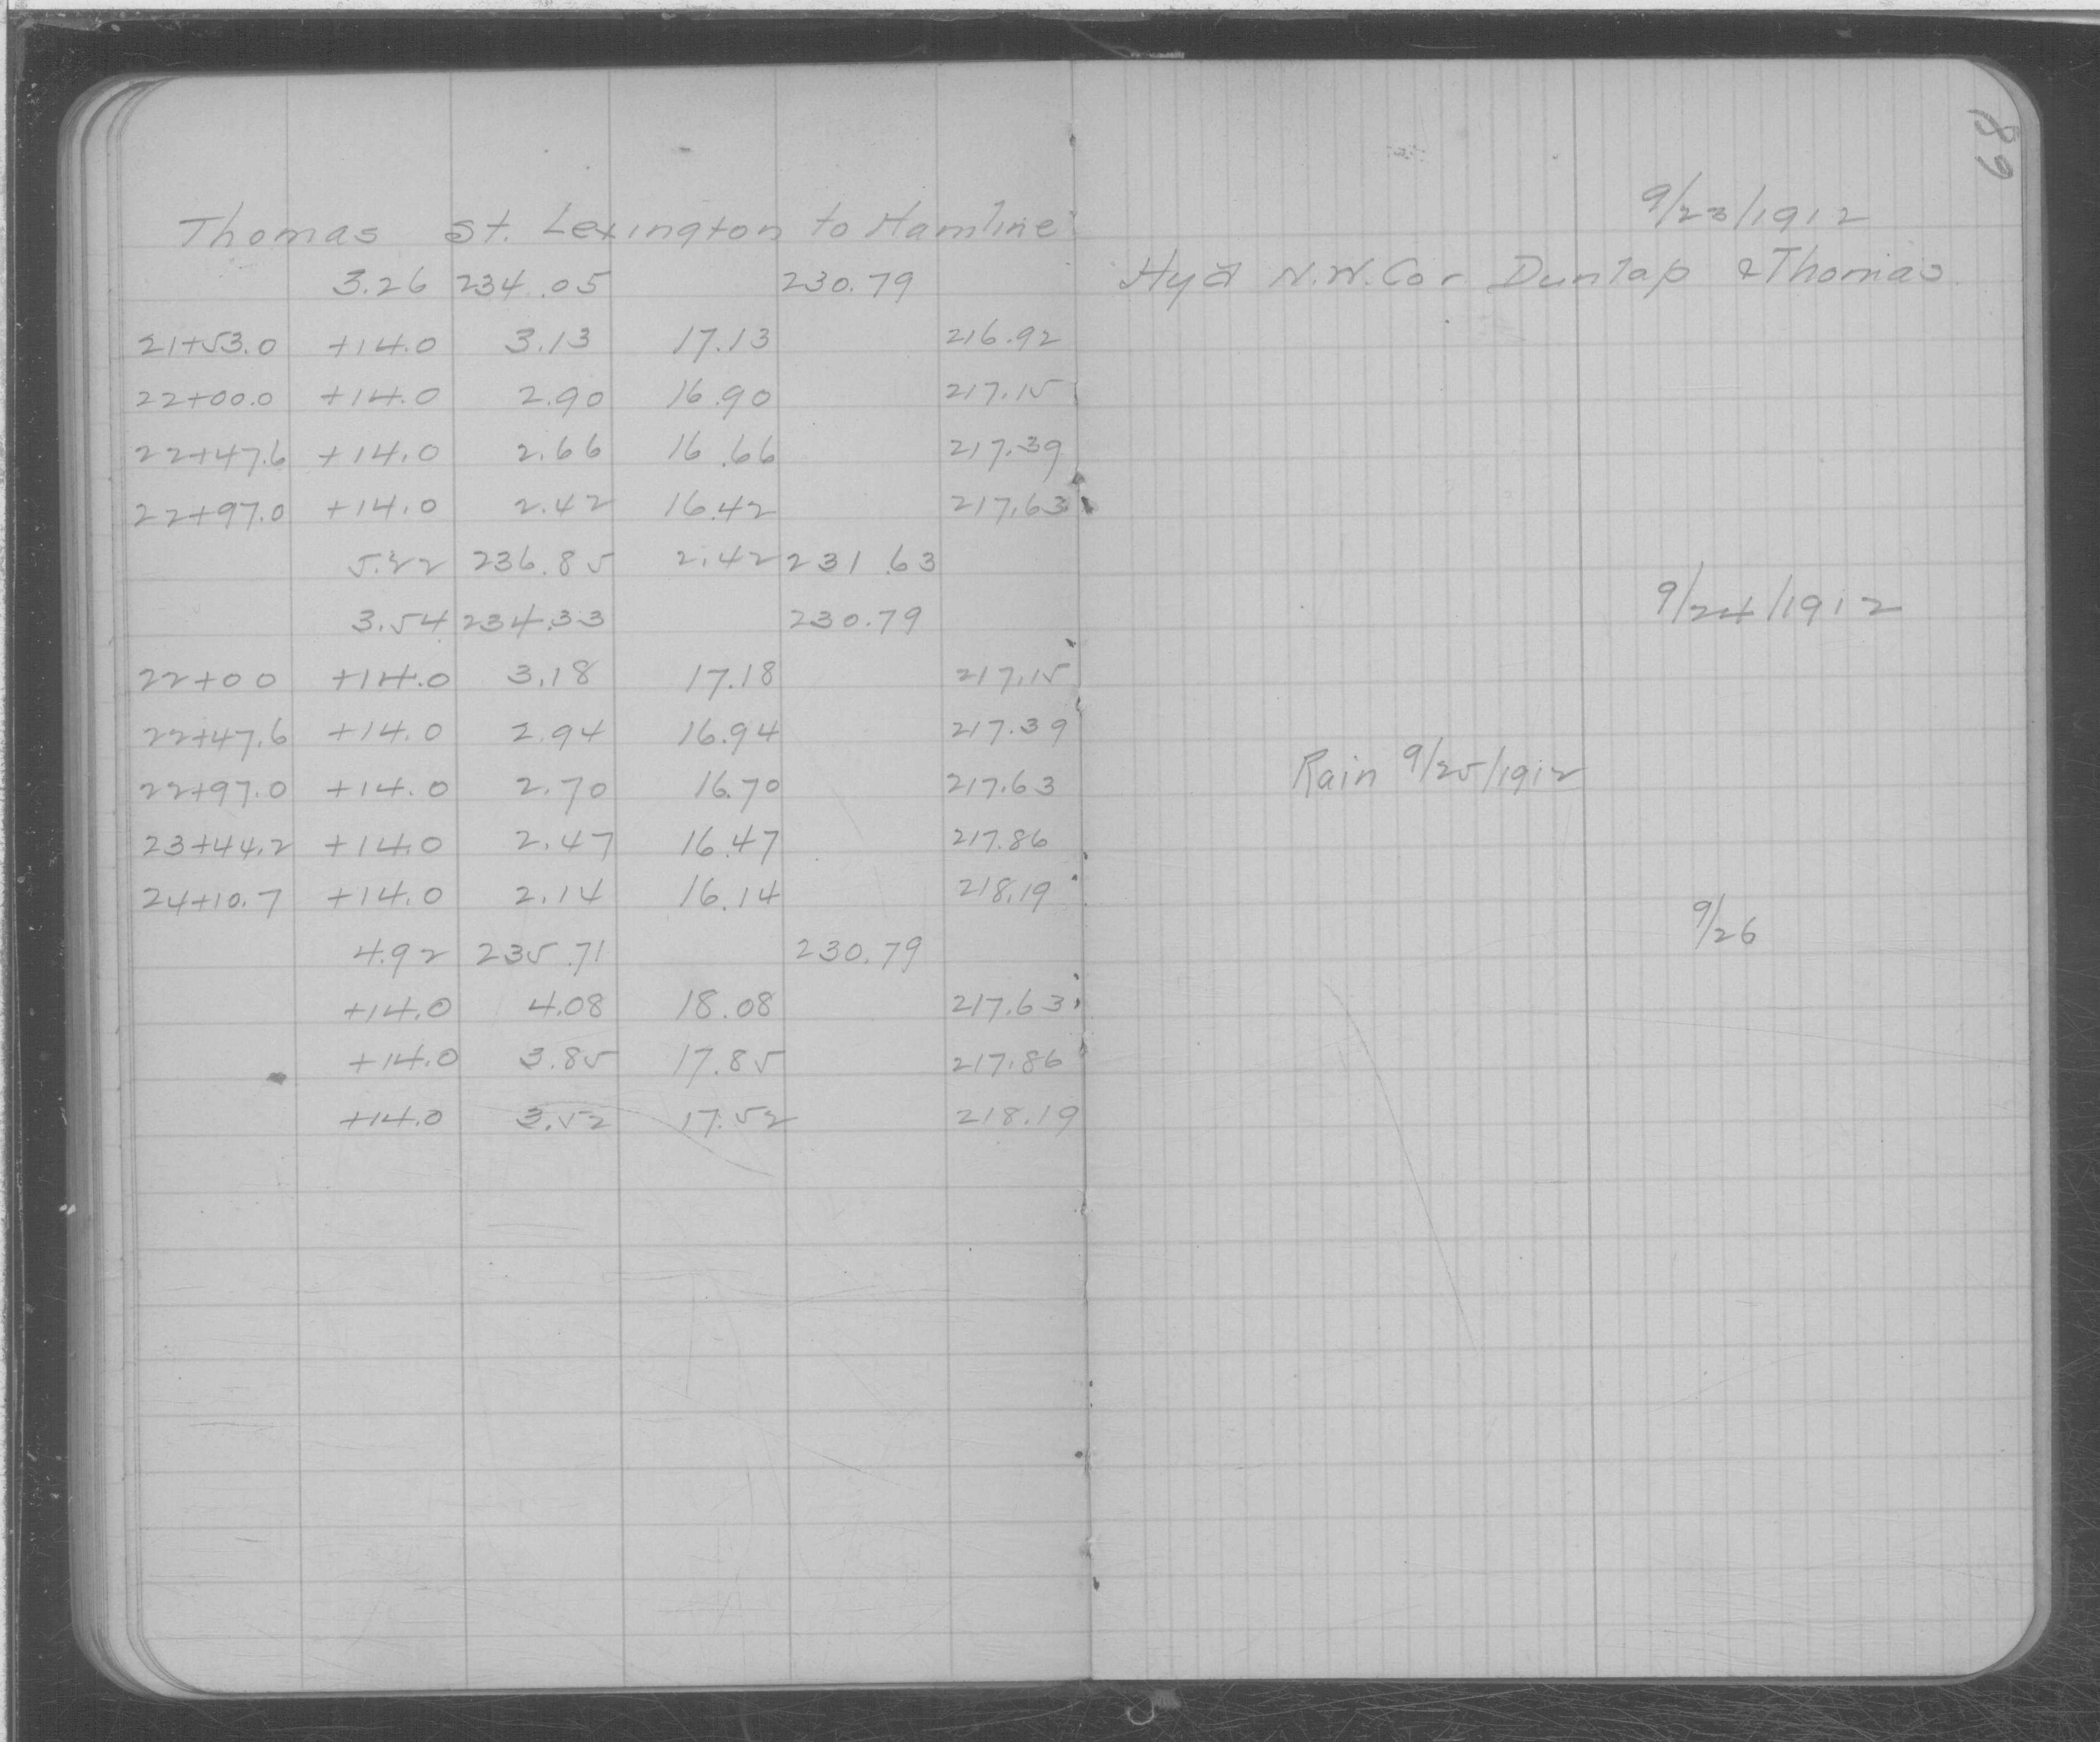 89
9/23/1912
Thomas St. Lexington to Hamline
3.26 234.05 230.79 Hyd N.W. Cor Dunlap & Thomas
21+53.0 +14.0 3.13 17.13 216.92
22+00.0 +14.0 2.90 16.90 217.15
22+47.6 +14.0 2.66 16.66 217.39
22+97.0 +14.0 2.42 16.42 217.63
5.22 236.85 2.42 231.63
3.54 234.33 230.79 9/24/1912
22+00 +14.0 3.18 17.18 217.15
22+47.6 +14.0 2.94 16.94 217.39
22+97.0 +14.0 2.70 16.70 217.63 Rain 9/25/1912
23+44.2 +14.0 2.47 16.47 217.86
24+10.7 +14.0 2.14 16.14 218.19
4.92 235.71 230.79 9/26
+14.0 4.08 18.08 217.63
+14.0 3.85 17.85 217.86
+14.0 3.52 17.52 218.19